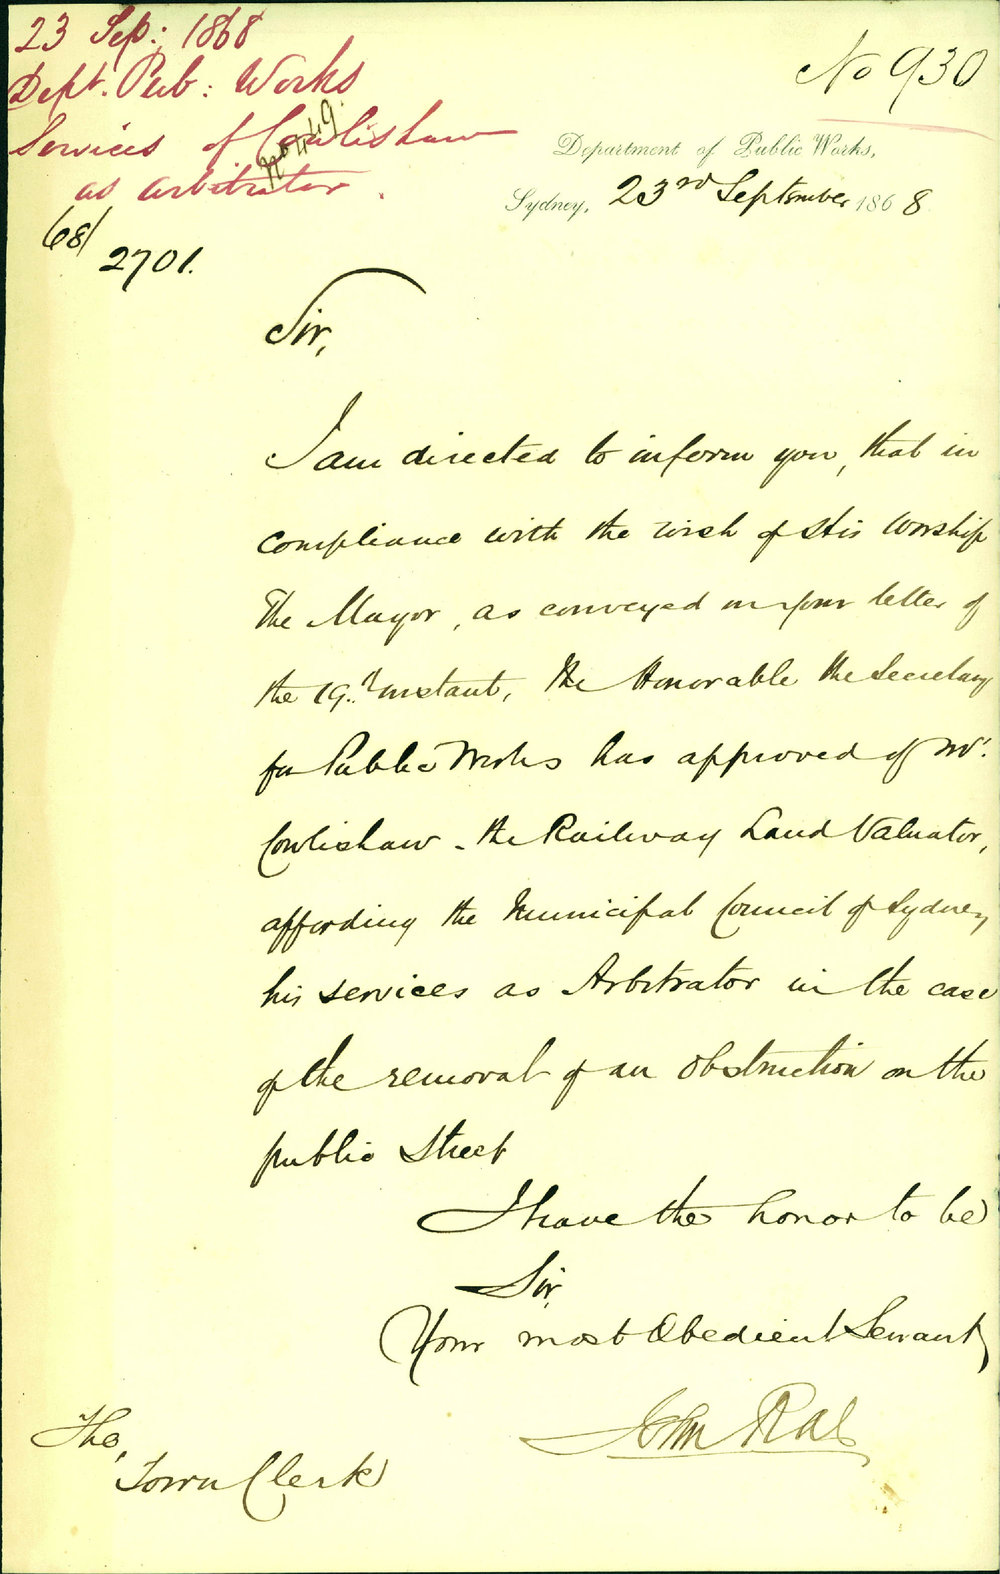 23 Sep: 1868
Dept. Pub: Works
Services of Cowlishaw
as arbitrator.
68/
2701.
No 930
Department of Public Works,
Sydney, 23rd September 1868
Sir,
I am directed to inform you, that in
compliance with the wish of His Worship
The Mayor, as conveyed in your letter of
the 19th instant, the Honorable the Secretary
for Public Works has approved of Mr.
Cowlishaw - the Railway Land Valuator,
affording the Municipal Council of Sydney
his services as Arbitrator in the case
of the removal of an obstruction on the
public Street
I have the honor to be
Sir,
Your most Obedient Servant
John Rae
The,
Town Clerk